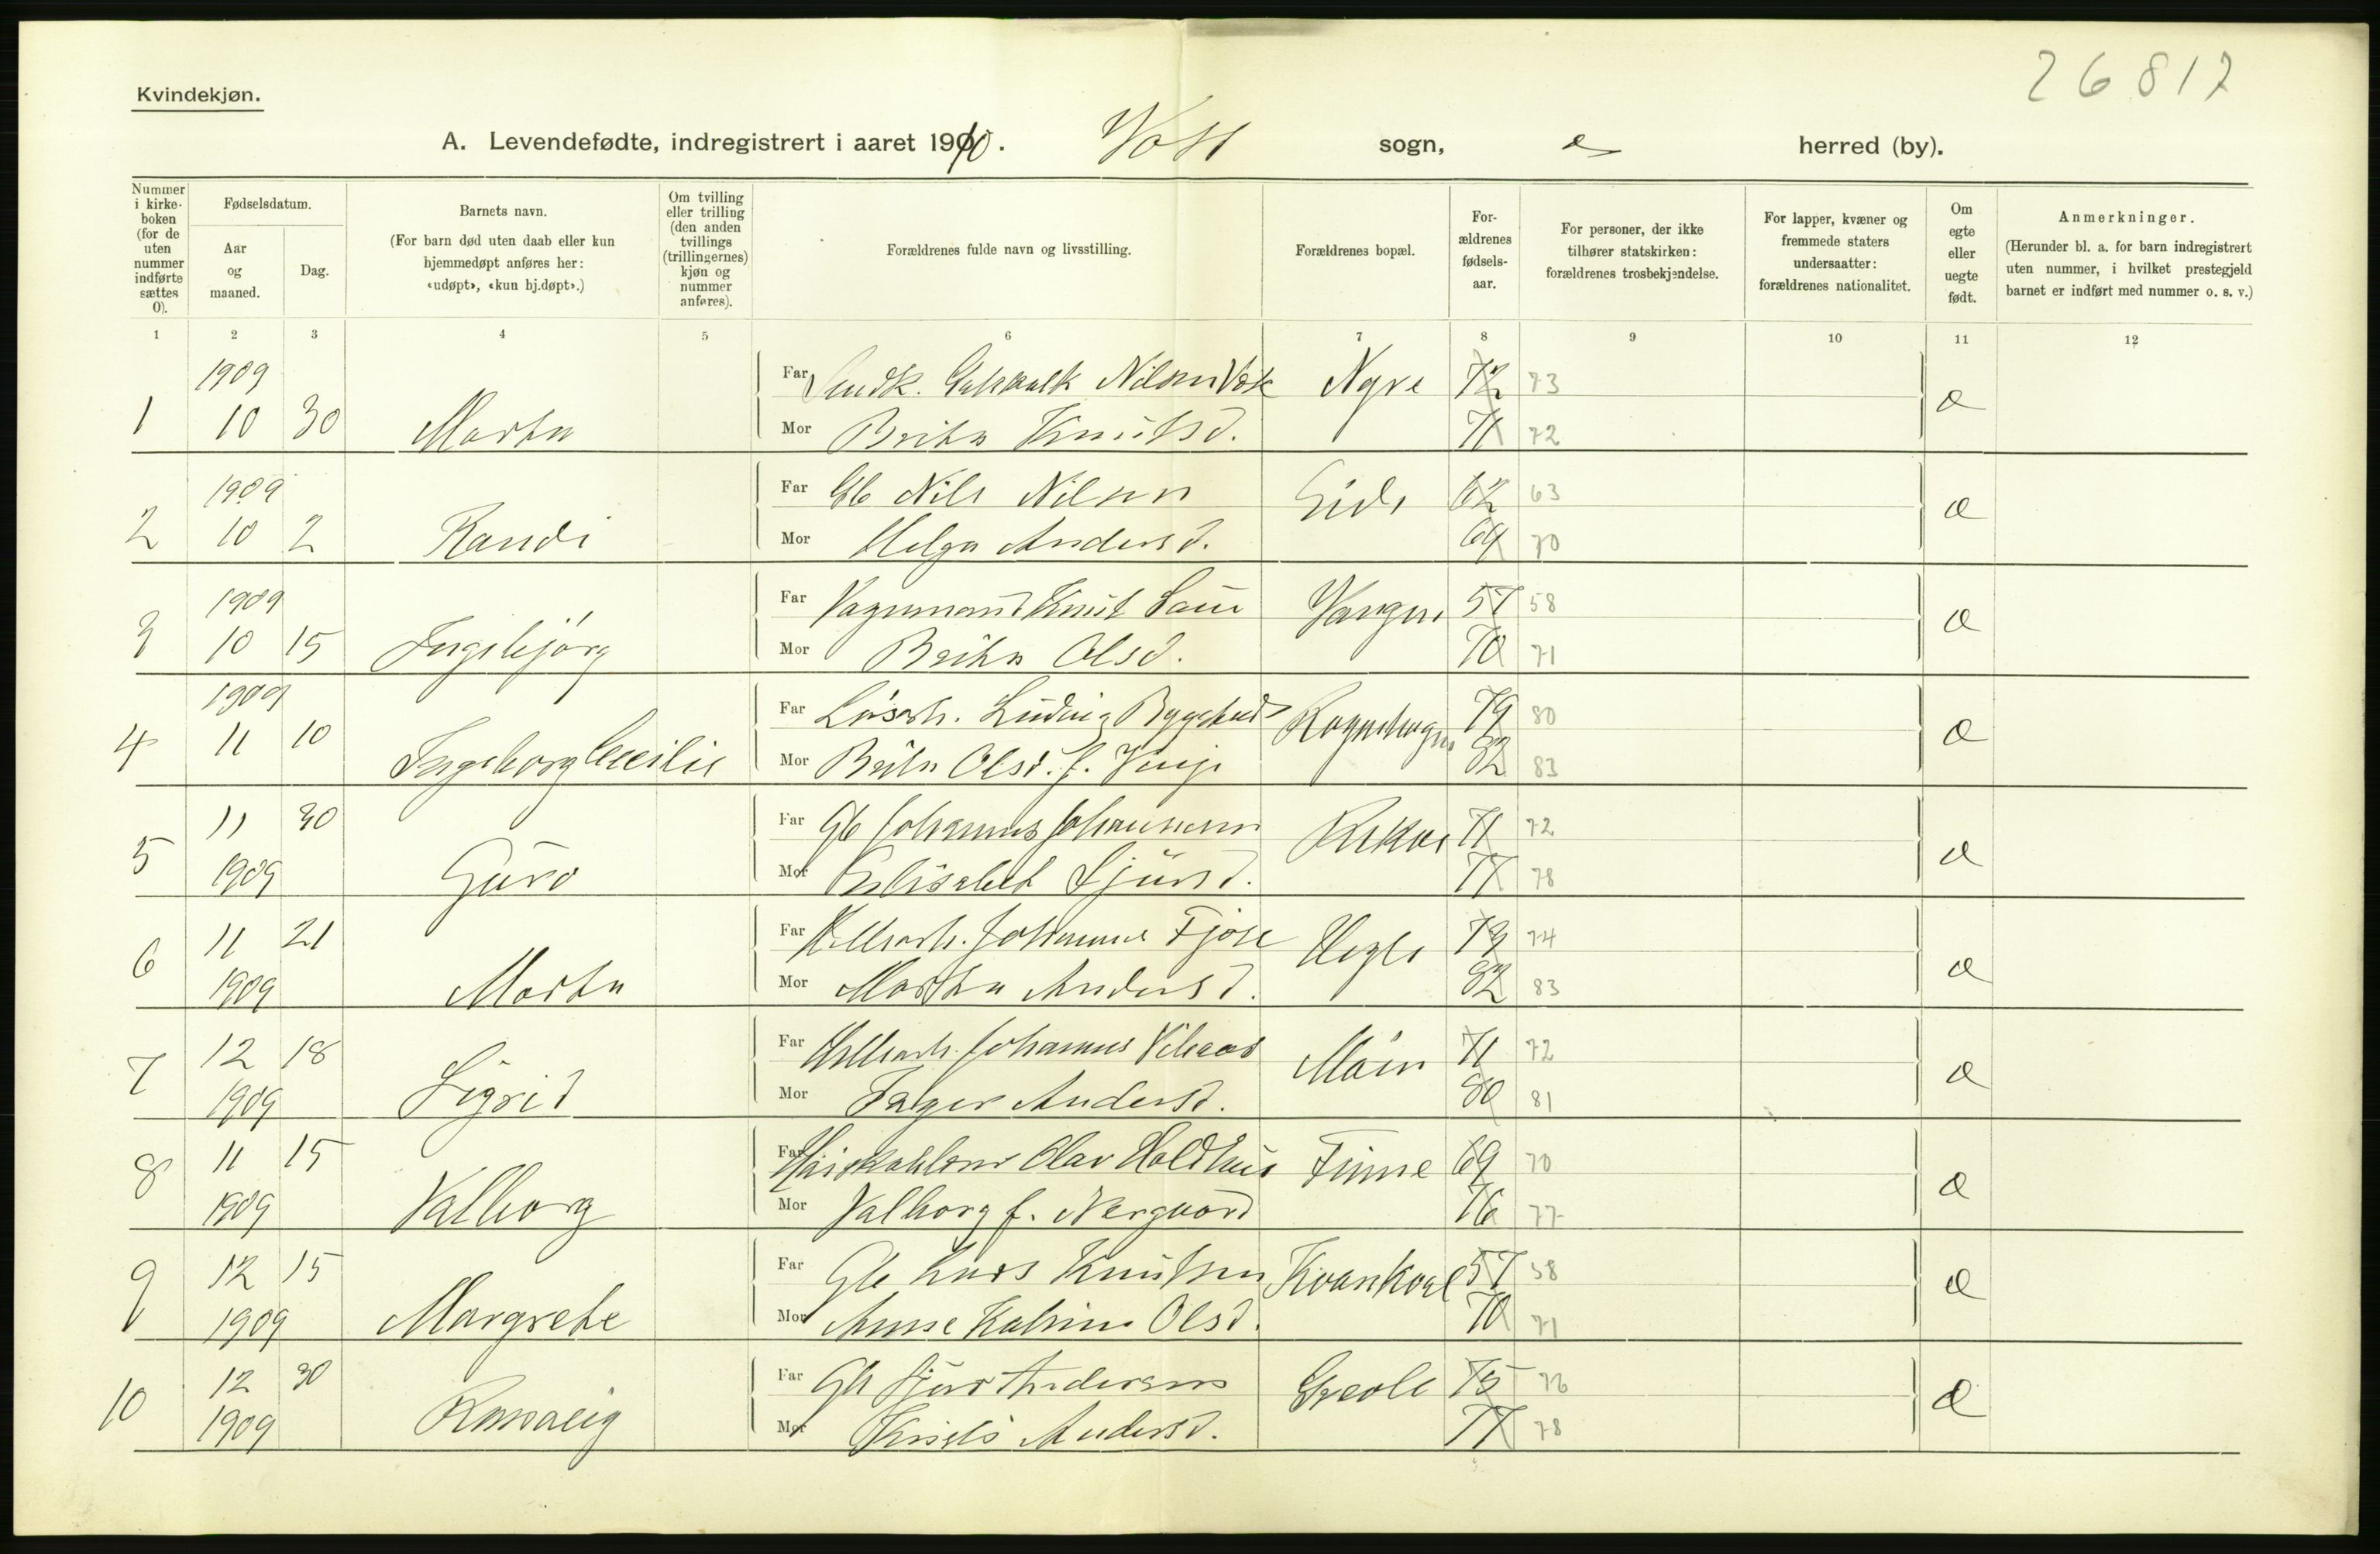 26812
Kvindekjøn.
A. Levendefødte, indregistrert i aaret 1910. Voss sogn, herred (by).
Nummer i kirke-boken (for de uten nummer indførte sættes 0).
Fødselsdatum.
Aar og maaned.
Dag.
Barnets navn.
(For barn død uten daab eller kun hjemmedøpt anføres her: «udøpt», «kun hj.døpt».)
Om tvilling eller trilling (den anden tvillings (trillingernes) kjøn og nummer anføres).
Forældrenes fulde navn og livsstilling.
Forældrenes bopæl.
For-ældrenes fødsels-aar.
For personer, der ikke tilhører statskirken: forældrenes trosbekjendelse.
For lapper, kvæner og fremmede staters undersaatter: forældrenes nationalitet.
Om egte eller uegte født.
Anmerkninger.
(Herunder bl. a. for barn indregistrert uten nummer, i hvilket prestegjeld barnet er indført med nummer o. s. v.)
1 2 3 4 5 6 7 8 9 10 11 12
1909
Far Nilsen 72 73
1 10 30 Martha
Mor Britha Knutsd. 71 72
1909
Far Gb Nils Nilsen Eide 62 63
2 10 2 Randi
Mor Helga Andersd. 69 70
1909
Far Vognmand Knut Vangen 57 58
3 10 15 Ingebjørg
Mor Britha Olsd. 70 71
1909
Far Ludvig 79 80
4 11 10 Ingeborg Cecilie
Mor Britha Olsd. f. Vinje 82 83
Far Gb Johannes Johannesen Rekve 71 72
5 11 30 Guro
1909
Mor Elisabet Sjursd. 77 78
Far Johannes Fjose 73 74
6 11 21 Martha
1909
Mor Martha Andersd. 82 83
Far Johannes 71 72
7 12 18 Sigrid
1909
Mor Andersd. 80 81
Far Olav Holdhus Finne 69 70
8 11 15 Valborg
1909
Mor Valborg f. Nergaard 76 77
Far Gb Lars Knutsen 57 58
9 12 15 Margrete
1909
Mor Anne Katrine Olsd. 70 71
Far Gb Sjur Andersen 75 76
10 12 30
1909
Mor Andersd. 77 78